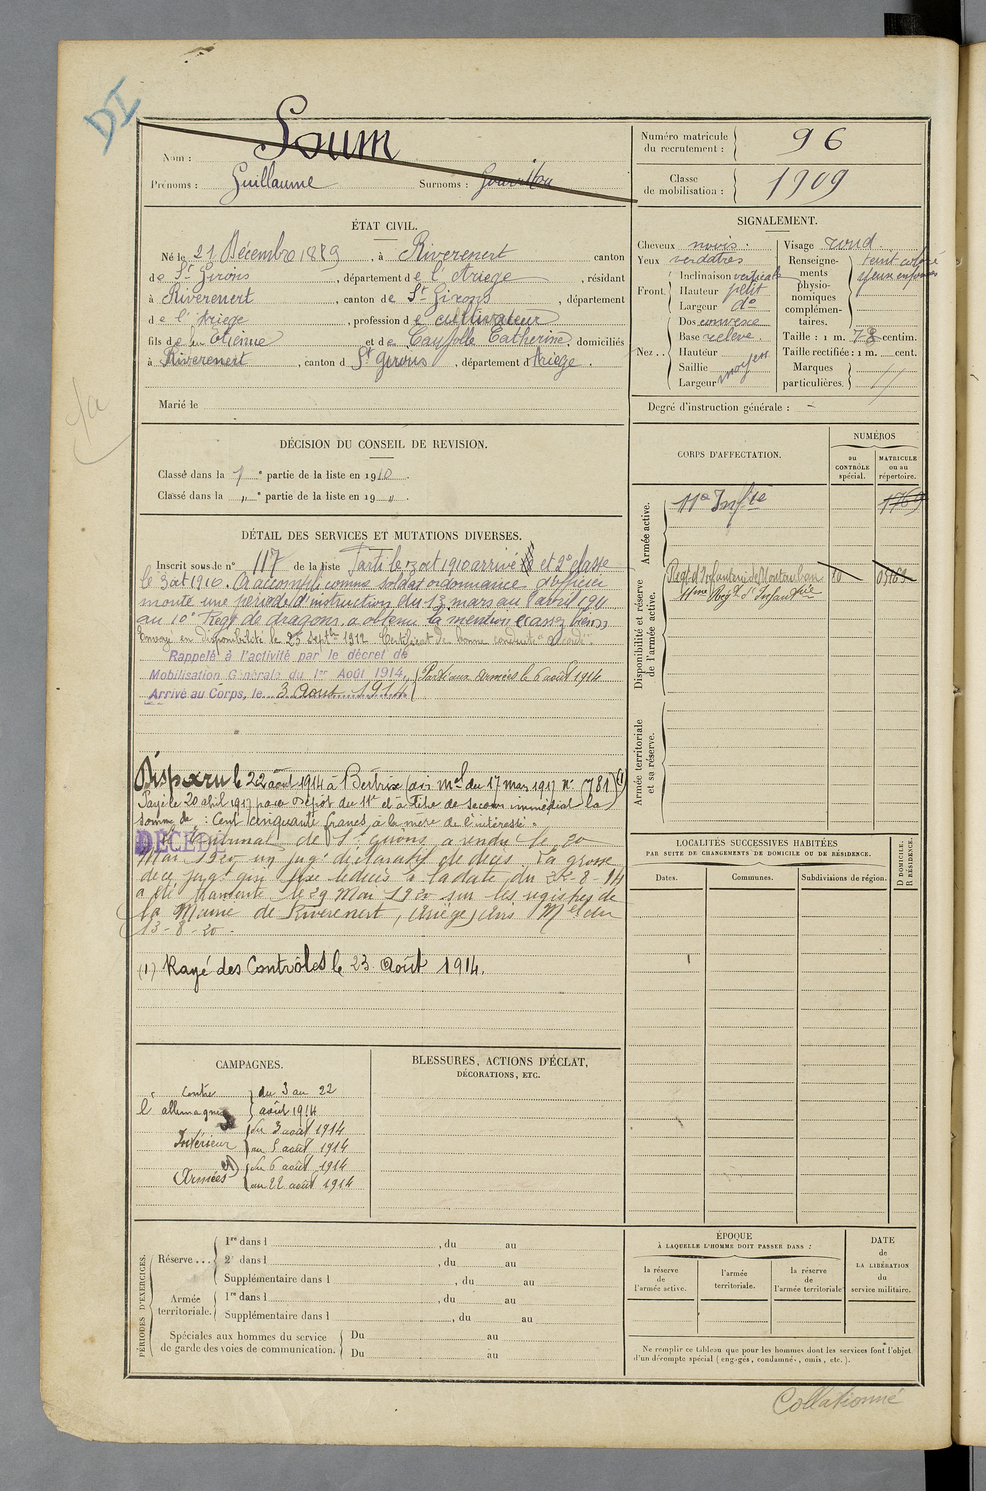 DI
Nom : Soum
Prénoms : Guillaume Surnoms :
Numéro matricule du recrutement : 96
Classe de mobilisation : 1909
ÉTAT CIVIL.
Né le 21 Décembre 1889, à Riverenert canton
de St Girons, département de l'Ariège, résidant
à Riverenert, canton de St Girons, département
de l'Ariège, profession de cultivateur
fils de feu Etienne et de Catherine, domiciliés
à Riverenert, canton d St Girons, département d'Ariège.
Marié le
SIGNALEMENT.
Cheveux noirs.
Yeux verdâtres
Front. Inclinaison verticale
Hauteur petit
Largeur do
Nez . . Dos convexe
Base relevé
Hauteur
Saillie moyen
Largeur
Visage rond
Renseignements physionomiques complémentaires. teint coloré
yeux enfoncés
Taille : 1 m. 78 centim.
Taille rectifiée : 1 m. cent.
Marques particulières. //
Degré d'instruction générale : -
DÉCISION DU CONSEIL DE REVISION.
Classé dans la 1e partie de la liste en 1910.
Classé dans la „ e partie de la liste en 19 „ .
CORPS D'AFFECTATION.
NUMÉROS
AU CONTRÔLE spécial.
MATRICULE ou au répertoire.
Armée active.
11e Infie 1769
Disponibilité et réserve de l'armée active.
Regt d'Infanterie de Montauban
11ème Regt d'Infanterie
Armée territoriale et sa réserve.
DÉTAIL DES SERVICES ET MUTATIONS DIVERSES.
Inscrit sous le n° 117 de la liste Parti le 3 oct 1910 arrivé et 2e classe
le 3 oct 1910. A accompli comme soldat ordonnance d'officier
monté une période d'instruction du 13 mars au 8 avril 1911
au 10e Regt de dragons, a obtenu la mention "assez bien"
Envoyé en disponibilité le 25 septbre 1912 Certificat de bonne conduite "accordé".
Rappelé à l'activité par le décret de
Mobilisation Générale du 1er Août 1914.
Arrivé au Corps, le 3 Aout 1914
Parti aux Armées le 6 août 1914
Disparu le 22 août 1914 à Bertrix (avis mel du 17 mars 1917 n° 781) (1)
Payé le 20 avril 1917 par le Dépôt du 11e et à titre de secours immédiat la
somme de : Cent cinquante francs, à la mère de l'intéressé.
DÉCÉDÉ
Le Tribunal de St Girons a rendu le 20
Mai 1920 un jugt déclaratif de décès. La grosse
de ce jugt qui fixe le décès à la date du 22-8-14
a été transcrite le 29 Mai 1920 sur les registres de
la Mairie de Riverenert, (Ariège) avis Mel du
13-8-20.
(1) Rayé des Contrôles le 23 Août 1914.
LOCALITÉS SUCCESSIVES HABITÉES
PAR SUITE DE CHANGEMENTS DE DOMICILE OU DE RÉSIDENCE.
Dates.
Communes.
Subdivisions de région.
D DOMICILE.
R RÉSIDENCE.
CAMPAGNES.
Contre l'allemagne du 3 au 22
août 1914
Intérieur du 3 août 1914
au 5 août 1914
Armées du 6 août 1914
au 22 août 1914
BLESSURES, ACTIONS D'ÉCLAT,
DÉCORATIONS, ETC.
PÉRIODES D'EXERCICES.
Réserve . . .
1re dans l , du au
2e dans l , du au
Supplémentaire dans l , du au
Armée territoriale.
1re dans l , du au
Supplémentaire dans l , du au
Spéciales aux hommes du service
de garde des voies de communication.
Du au
Du au
ÉPOQUE
À LAQUELLE L'HOMME DOIT PASSER DANS :
la réserve de l'armée active.
l'armée territoriale.
la réserve de l'armée territoriale
DATE de LA LIBÉRATION du service militaire.
Ne remplir ce tableau que pour les hommes dont les services font l'objet
d'un décompte spécial (engagés, condamnés, omis, etc.).
Collationné